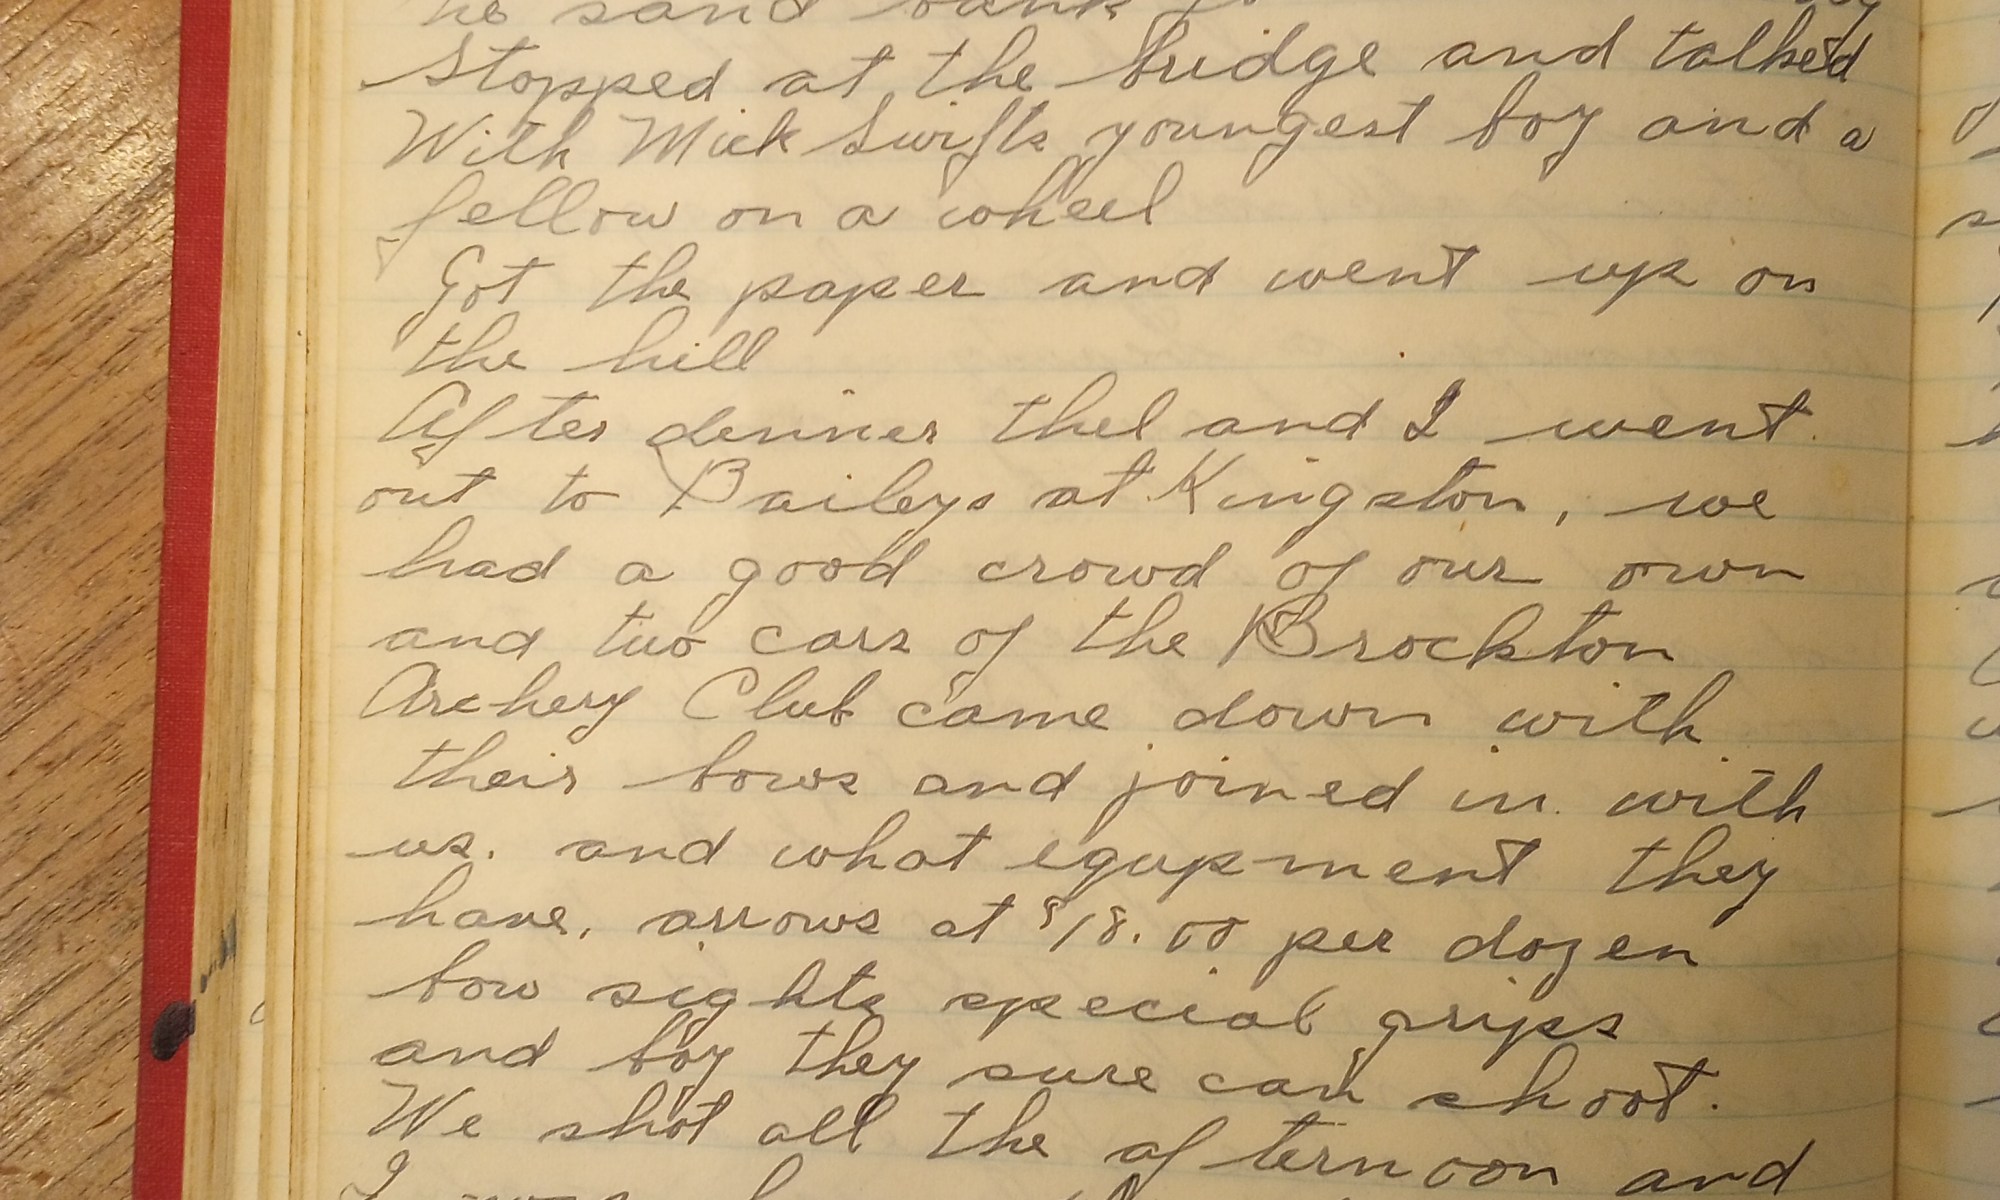 he sand bank
Stopped at the bridge and talked
With Mick Swifts youngest boy and a
fellow on a wheel
Got the paper and went up on
the hill
After denner thel and I went
out to Baileys at Kingston, we
had a good crowd of our own
and two cars of the Brockton
Archery Club came down with
their bows and joined in with
us. and what equpment they
have, arrows at $18.00 per dozen
bow sights special grips
and boy they sure can shoot.
We shot all the afternoon and
I